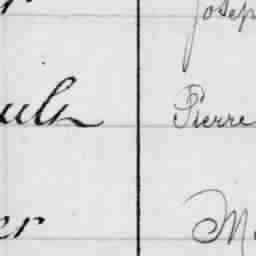 Josep
ult Pierre
er M.